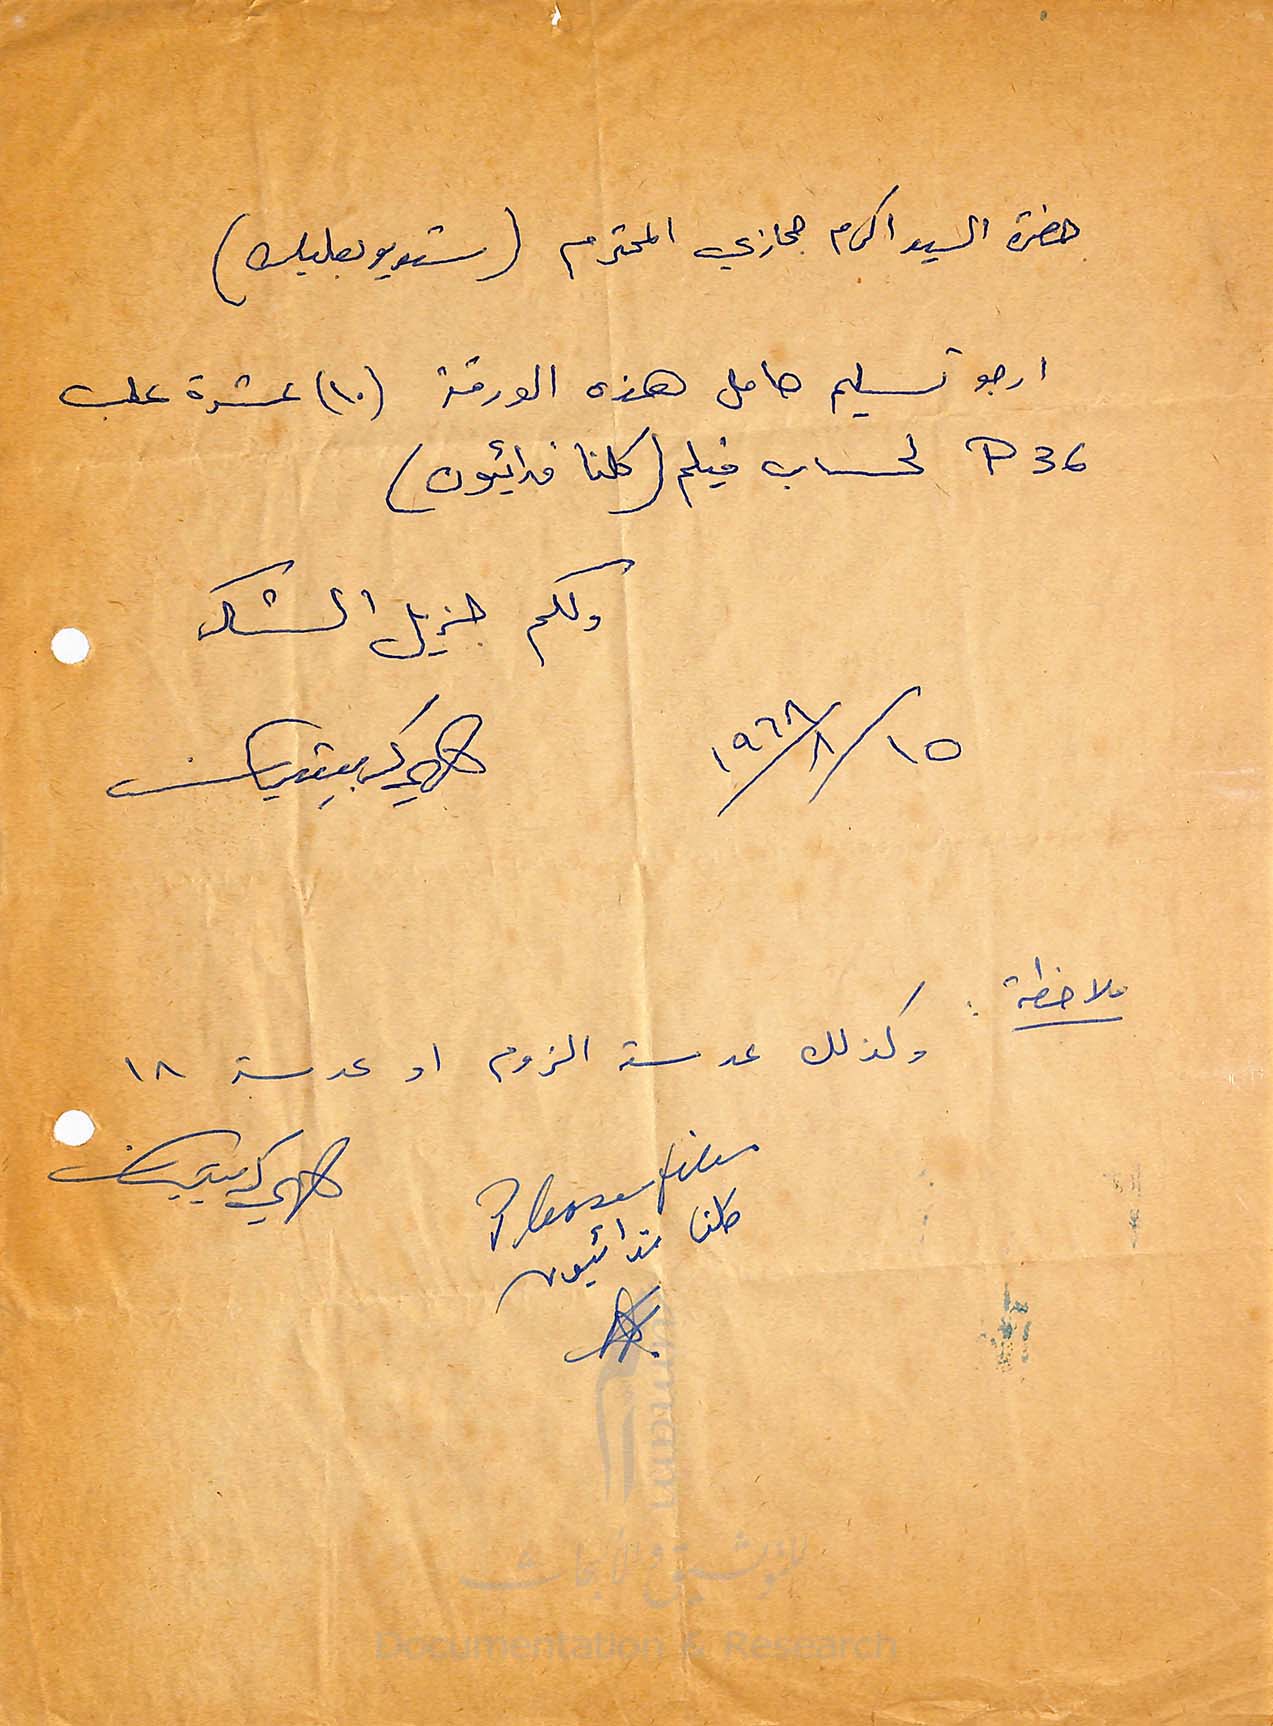 حضرة السيد اكرم حجازي المحترم (ستديو بعلبك)
ارجو تسليم حامل هذه الورقة (١٠) عشرة علب
P 36 لحساب فيلم (كلنا فدائيون)
ولكم جزيل الشكر
١٥/٨/١٩٦٨
ملاحظة :
وكذلك عدسة الزوم او عدسة ١٨
Please file
كلنا فدائيون
للتوثيق والأبحاث
Documentation & Research